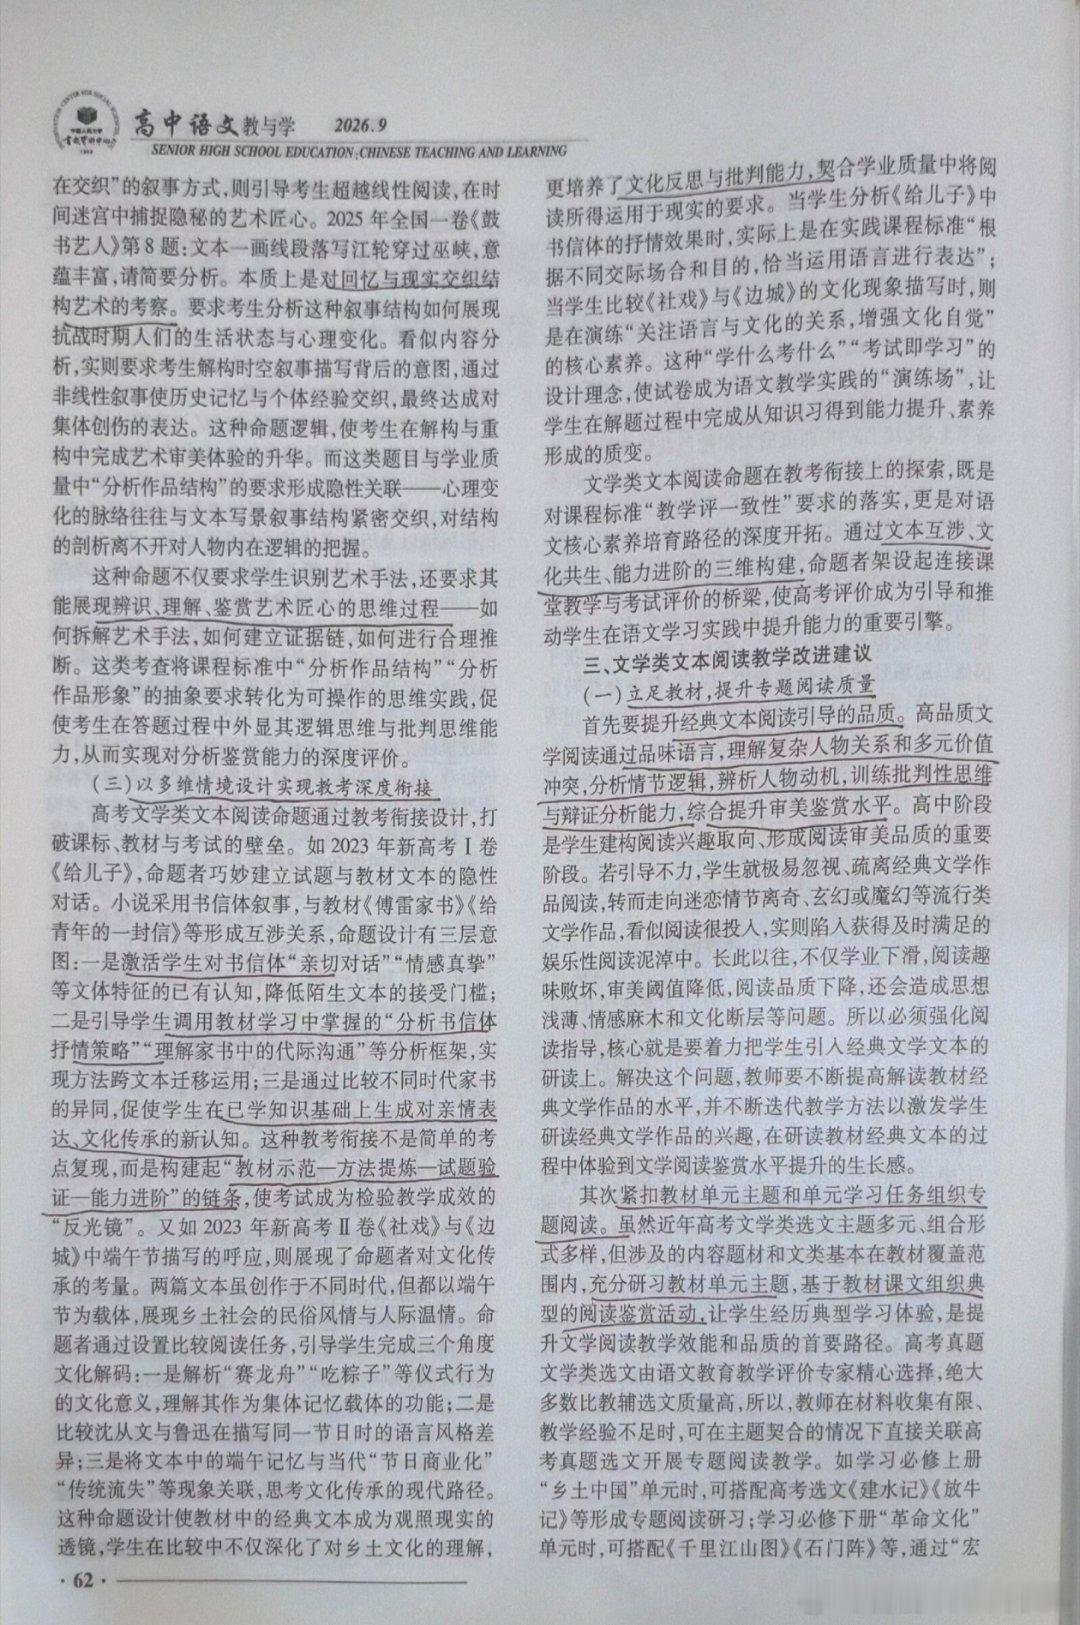 高中语文教与学 2026.9
SENIOR HIGH SCHOOL EDUCATION:CHINESE TEACHING AND LEARNING
在交织”的叙事方式,则引导考生超越线性阅读,在时
间迷宫中捕捉隐秘的艺术匠心。2025 年全国一卷《鼓
书艺人》第 8 题:文本一画线段落写江轮穿过巫峡,意
蕴丰富,请简要分析。本质上是对回忆与现实交织结
构艺术的考察。要求考生分析这种叙事结构如何展现
抗战时期人们的生活状态与心理变化。看似内容分
析,实则要求考生解构时空叙事描写背后的意图,通过
非线性叙事使历史记忆与个体经验交织,最终达成对
集体创伤的表达。这种命题逻辑,使考生在解构与重
构中完成艺术审美体验的升华。而这类题目与学业质
量中“分析作品结构”的要求形成隐性关联——心理变
化的脉络往往与文本写景叙事结构紧密交织,对结构
的剖析离不开对人物内在逻辑的把握。
这种命题不仅要求学生识别艺术手法,还要求其
能展现辨识、理解、鉴赏艺术匠心的思维过程——如
何拆解艺术手法,如何建立证据链,如何进行合理推
断。这类考查将课程标准中“分析作品结构”“分析
作品形象”的抽象要求转化为可操作的思维实践,促
使考生在答题过程中外显其逻辑思维与批判思维能
力,从而实现对分析鉴赏能力的深度评价。
(三)以多维情境设计实现教考深度衔接
高考文学类文本阅读命题通过教考衔接设计,打
破课标、教材与考试的壁垒。如 2023 年新高考Ⅰ卷
《给儿子》,命题者巧妙建立试题与教材文本的隐性
对话。小说采用书信体叙事,与教材《傅雷家书》《给
青年的一封信》等形成互涉关系,命题设计有三层意
图:一是激活学生对书信体“亲切对话”“情感真挚”
等文体特征的已有认知,降低陌生文本的接受门槛;
二是引导学生调用教材学习中掌握的“分析书信体
抒情策略”“理解家书中的代际沟通”等分析框架,实
现方法跨文本迁移运用;三是通过比较不同时代家书
的异同,促使学生在已学知识基础上生成对亲情表
达、文化传承的新认知。这种教考衔接不是简单的考
点复现,而是构建起“教材示范—方法提炼—试题验
证—能力进阶”的链条,使考试成为检验教学成效的
“反光镜”。又如 2023 年新高考Ⅱ卷《社戏》与《边
城》中端午节描写的呼应,则展现了命题者对文化传
承的考量。两篇文本虽创作于不同时代,但都以端午
节为载体,展现乡土社会的民俗风情与人际温情。命
题者通过设置比较阅读任务,引导学生完成三个角度
文化解码:一是解析“赛龙舟”“吃粽子”等仪式行为
的文化意义,理解其作为集体记忆载体的功能;二是
比较沈从文与鲁迅在描写同一节日时的语言风格差
异;三是将文本中的端午记忆与当代“节日商业化”
“传统流失”等现象关联,思考文化传承的现代路径。
这种命题设计使教材中的经典文本成为观照现实的
透镜,学生在比较中不仅深化了对乡土文化的理解,
更培养了文化反思与批判能力,契合学业质量中将阅
读所得运用于现实的要求。当学生分析《给儿子》中
书信体的抒情效果时,实际上是在实践课程标准“根
据不同交际场合和目的,恰当运用语言进行表达”;
当学生比较《社戏》与《边城》的文化现象描写时,则
是在演练“关注语言与文化的关系,增强文化自觉”
的核心素养。这种“学什么考什么”“考试即学习”的
设计理念,使试卷成为语文教学实践的“演练场”,让
学生在解题过程中完成从知识习得到能力提升、素养
形成的质变。
文学类文本阅读命题在教考衔接上的探索,既是
对课程标准“教学评一致性”要求的落实,更是对语
文核心素养培育路径的深度开拓。通过文本互涉、文
化共生、能力进阶的三维构建,命题者架设起连接课
堂教学与考试评价的桥梁,使高考评价成为引导和推
动学生在语文学习实践中提升能力的重要引擎。
三、文学类文本阅读教学改进建议
(一)立足教材,提升专题阅读质量
首先要提升经典文本阅读引导的品质。高品质文
学阅读通过品味语言,理解复杂人物关系和多元价值
冲突,分析情节逻辑,辨析人物动机,训练批判性思维
与辩证分析能力,综合提升审美鉴赏水平。高中阶段
是学生建构阅读兴趣取向、形成阅读审美品质的重要
阶段。若引导不力,学生就极易忽视、疏离经典文学作
品阅读,转而走向迷恋情节离奇、玄幻或魔幻等流行类
文学作品,看似阅读很投入,实则陷入获得及时满足的
娱乐性阅读泥淖中。长此以往,不仅学业下滑,阅读趣
味败坏,审美阈值降低,阅读品质下降,还会造成思想
浅薄、情感麻木和文化断层等问题。所以必须强化阅
读指导,核心就是要着力把学生引入经典文学文本的
研读上。解决这个问题,教师要不断提高解读教材经
典文学作品的水平,并不断迭代教学方法以激发学生
研读经典文学作品的兴趣,在研读教材经典文本的过
程中体验到文学阅读鉴赏水平提升的生长感。
其次紧扣教材单元主题和单元学习任务组织专
题阅读。虽然近年高考文学类选文主题多元、组合形
式多样,但涉及的内容题材和文类基本在教材覆盖范
围内,充分研习教材单元主题,基于教材课文组织典
型的阅读鉴赏活动,让学生经历典型学习体验,是提
升文学阅读教学效能和品质的首要路径。高考真题
文学类选文由语文教育教学评价专家精心选择,绝大
多数比教辅选文质量高,所以,教师在材料收集有限、
教学经验不足时,可在主题契合的情况下直接关联高
考真题选文开展专题阅读教学。如学习必修上册
“乡土中国”单元时,可搭配高考选文《建水记》《放牛
记》等形成专题阅读研习;学习必修下册“革命文化”
单元时,可搭配《千里江山图》《石门阵》等,通过“宏
· 62 ·